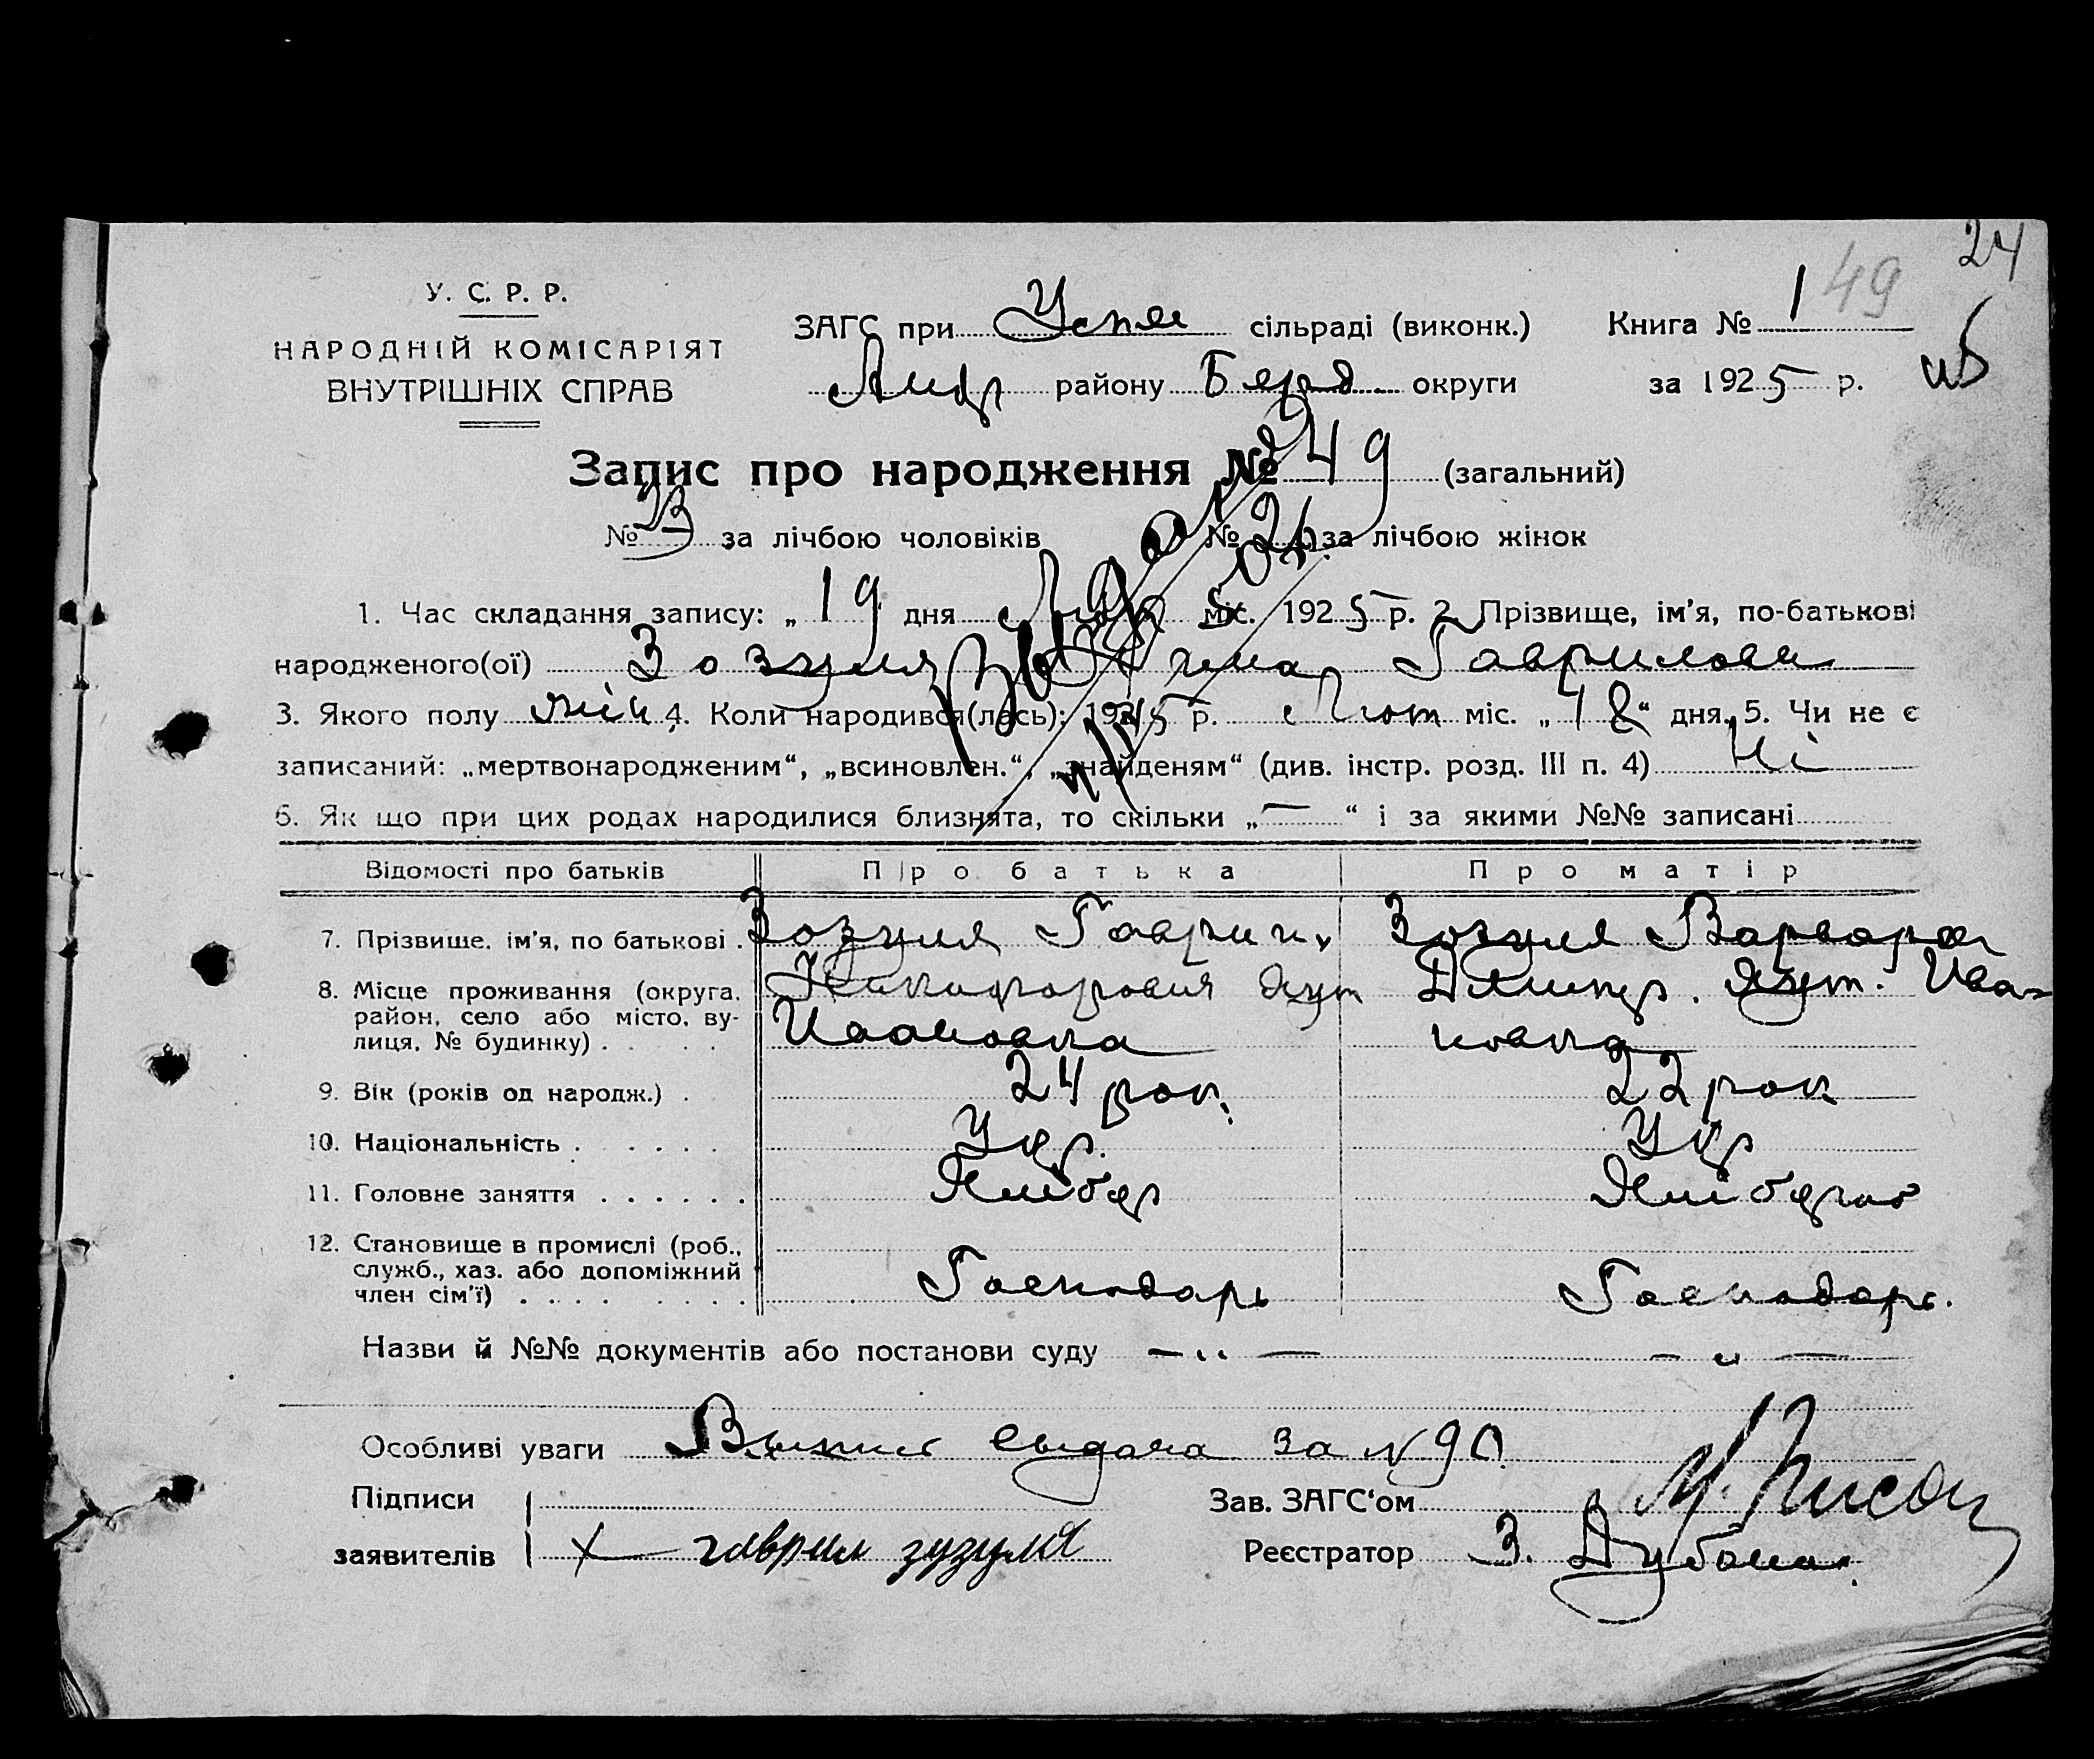 24
49
У. С. Р. Р.
НАРОДНІЙ КОМІСАРІЯТ
ВНУТРІШНІХ СПРАВ
ЗАГС при Успен сільраді (виконк.) Книга № 1
Андр району Бердр округи за 1925 р.
Запис про народження № 49 (загальний)
№ 23 за лічбою чоловіків № 26 за лічбою жінок
1. Час складання запису: „19 дня Лют міс. 1925 р. 2. Прізвище, ім'я, по-батькові
народженого(ої) Зозуля Гаврилова
3. Якого полу жін 4. Коли народився(лась): 1925 р. Лют міс. „18“ дня. 5. Чи не є
записаний: „мертвонародженим“, „всиновлен.“, „знайденям“ (див. інстр. розд. III п. 4) Ні
6. Як що при цих родах народилися близнята, то скільки „—“ і за якими №№ записані
Відомості про батьків Про батька Про матір
7. Прізвище, ім'я, по батькові . Зозуля Гаврил Зозуля Варвара
8. Місце проживання (округа, район, село або місто, вулиця, № будинку) . Никифорович хут Ивановка Дмитр. хут. Ивановка
9. Вік (років од народж.) . 24 рок. 22 рок
10. Національність . Укр. Укр
11. Головне заняття . Хлібор Хлібороб
12. Становище в промислі (роб., служб., хаз. або допоміжний член сім'ї) . Господарь Господарь.
Назви й №№ документів або постанови суду — „ — — „ —
Особливі уваги Выпись выдана за № 90
Підписи
заявителів х гаврил зузуля
Зав. ЗАГС'ом
Реєстратор З.